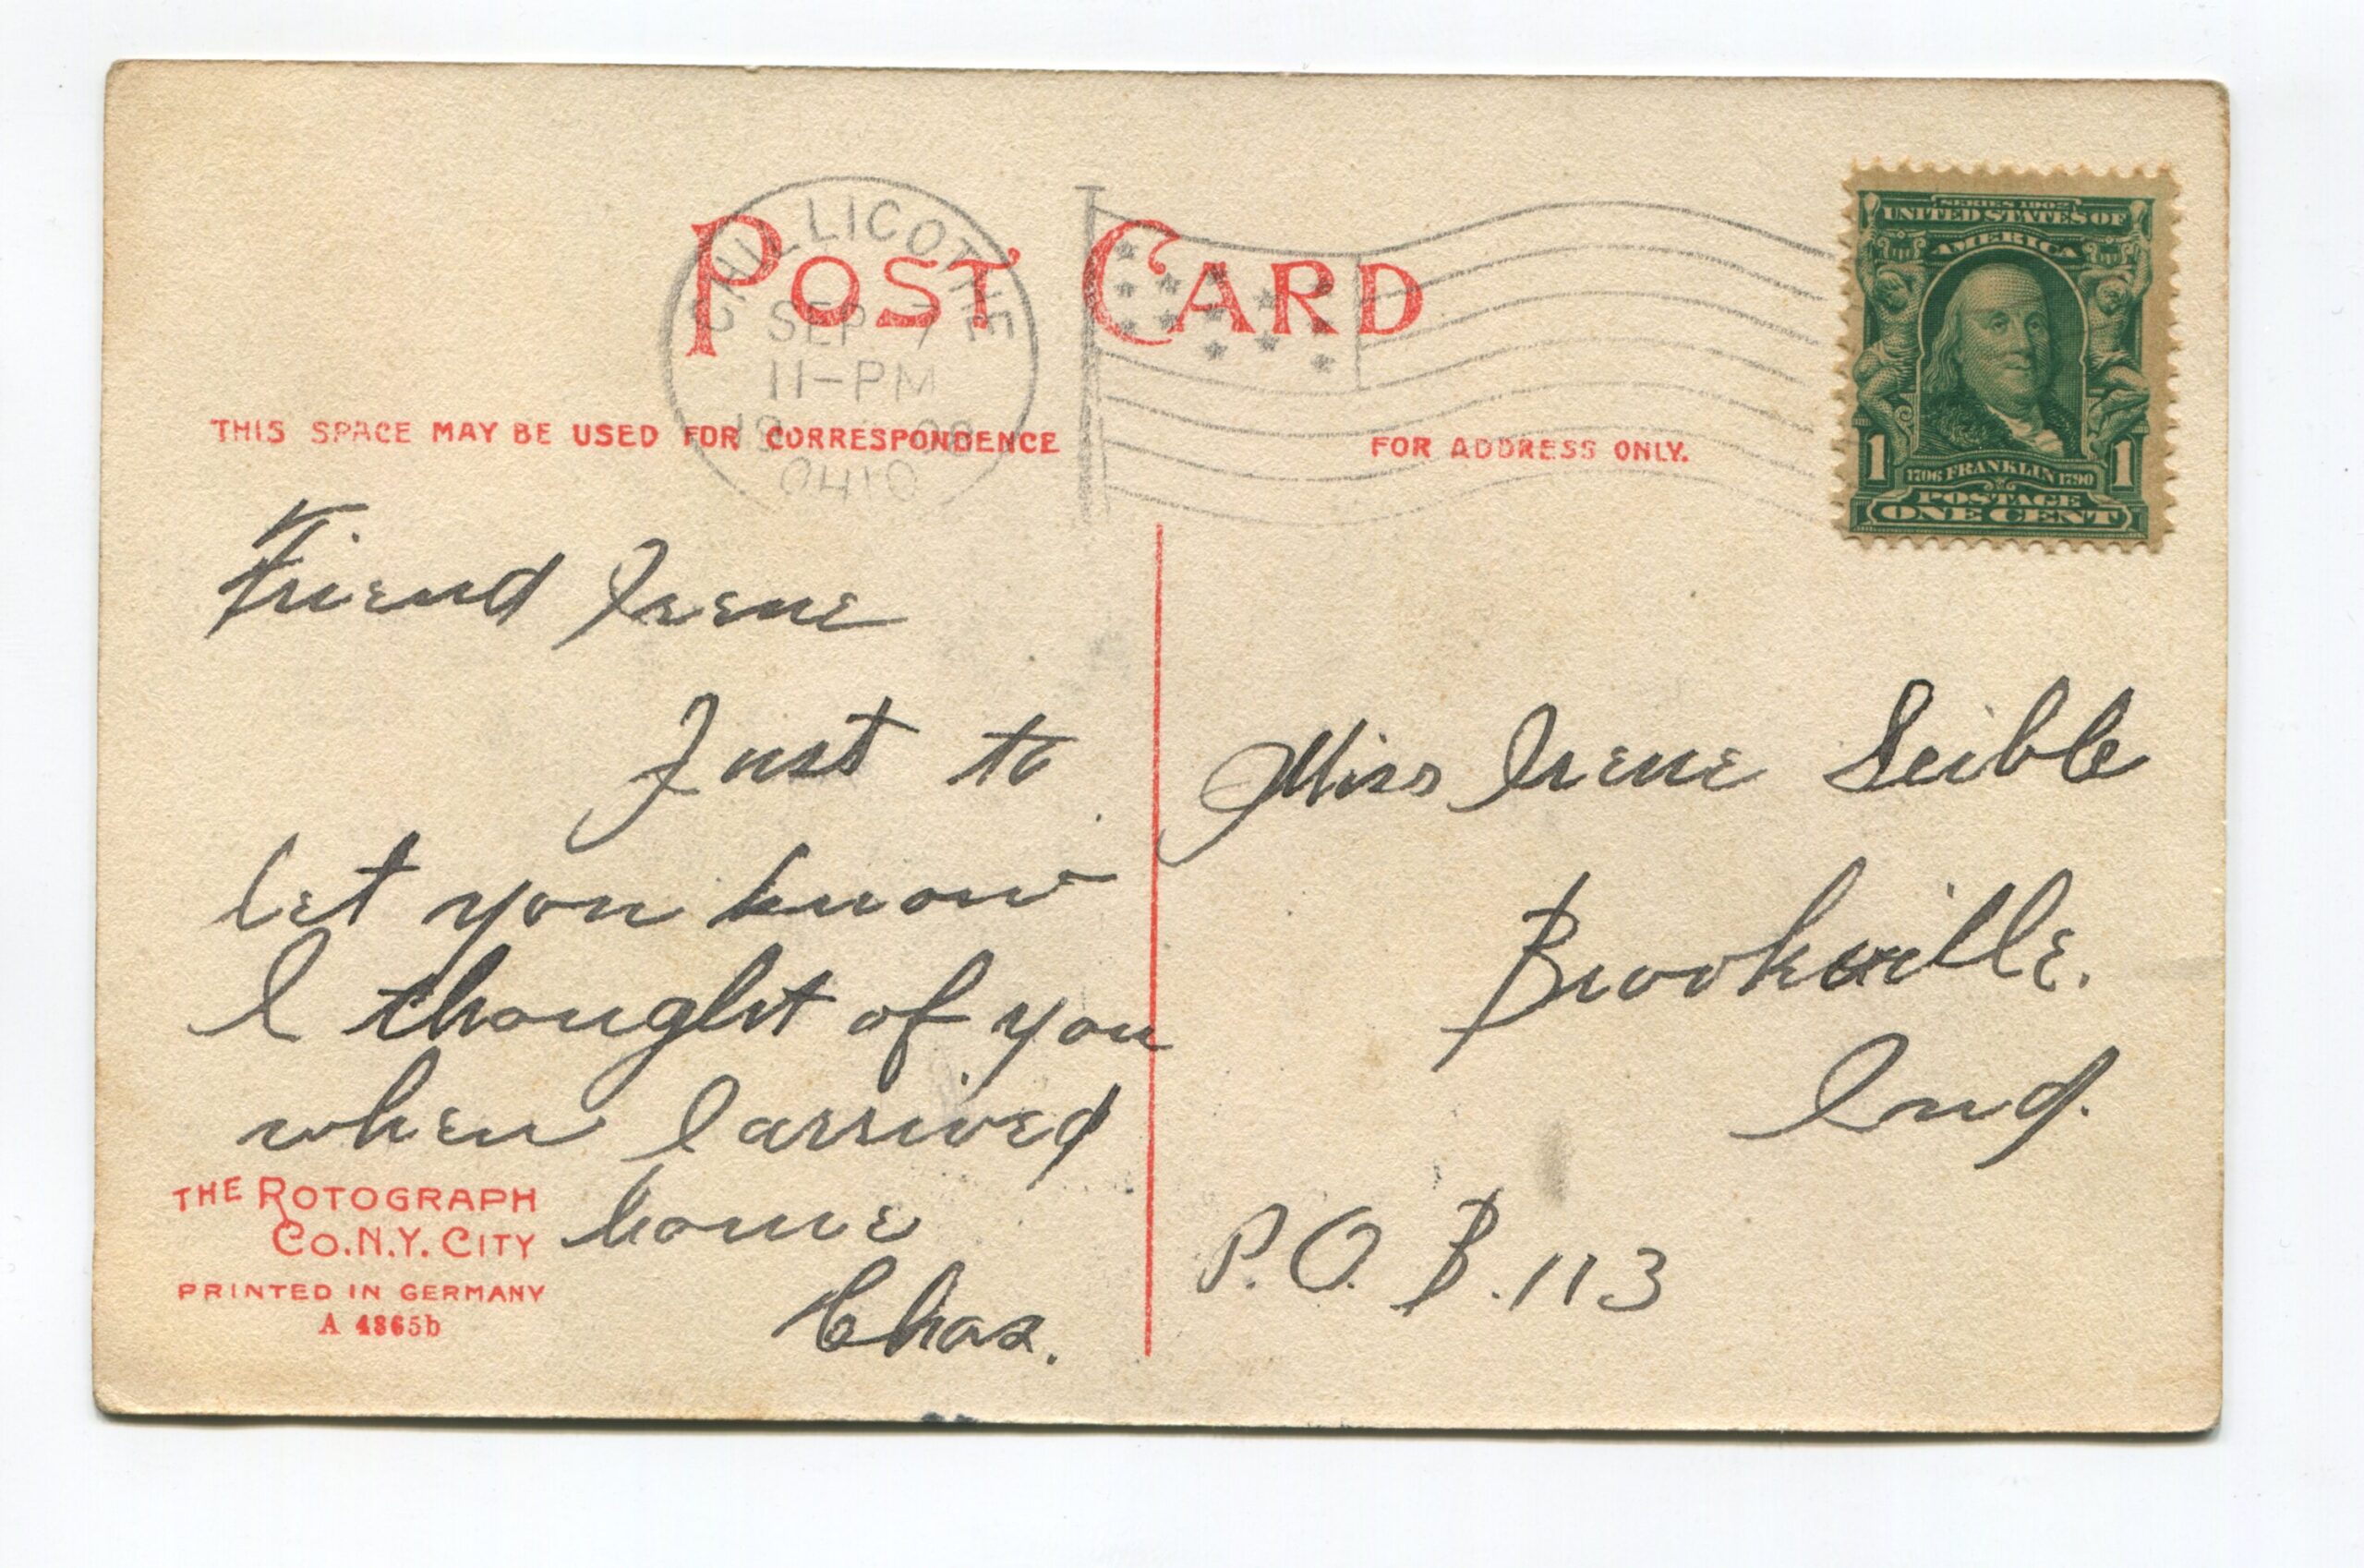 POST CARD
CHILLICOTHE
SEP 7
11-PM
1908
OHIO
SERIES 1902
UNITED STATES OF
AMERICA
1 1706 FRANKLIN 1790 1
POSTAGE
ONE CENT
THIS SPACE MAY BE USED FOR CORRESPONDENCE
FOR ADDRESS ONLY.
Friend Irene
Just to
let you know
I thought of you
when I arrived
home
Chas.
THE ROTOGRAPH
CO. N.Y. CITY
PRINTED IN GERMANY
A 4865b
Miss Irene Seible
Brookville.
Ind.
P.O. B. 113